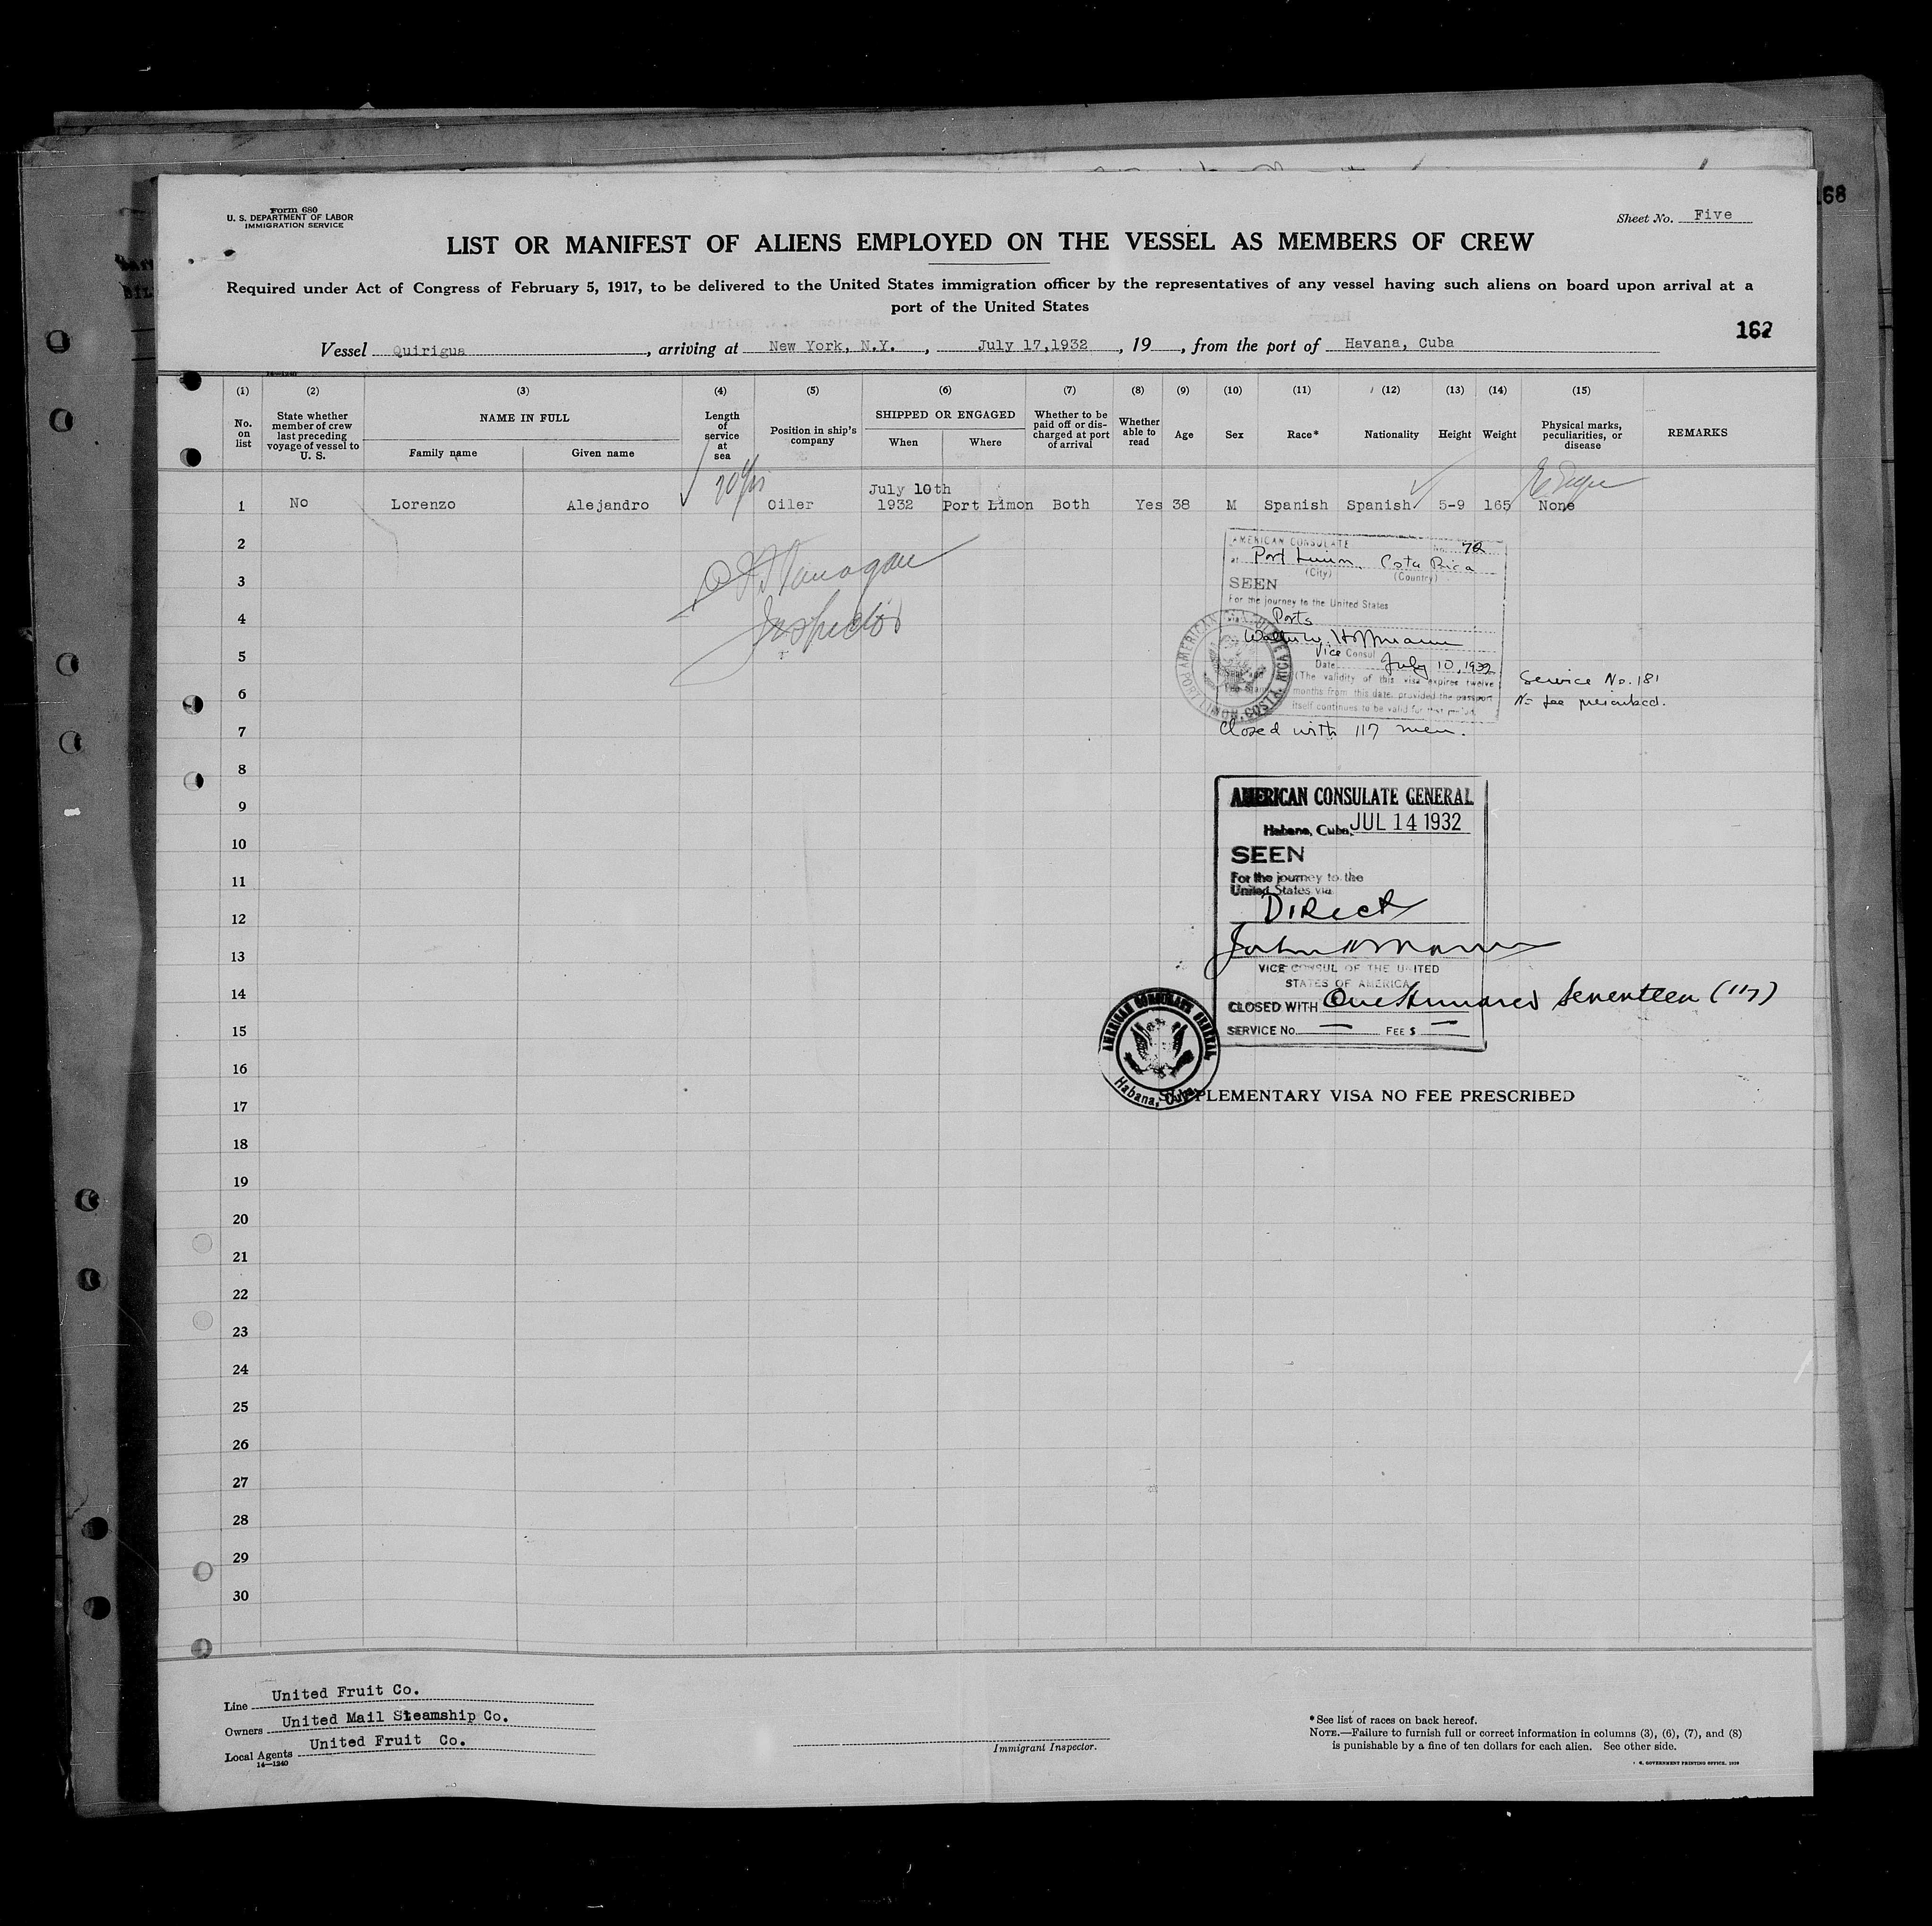 Form 680
U. S. DEPARTMENT OF LABOR
IMMIGRATION SERVICE
Sheet No. Five
168
LIST OR MANIFEST OF ALIENS EMPLOYED ON THE VESSEL AS MEMBERS OF CREW
Required under Act of Congress of February 5, 1917, to be delivered to the United States immigration officer by the representatives of any vessel having such aliens on board upon arrival at a
port of the United States
162
Vessel Quirigua, arriving at New York, N.Y., July 17,1932, 19 , from the port of Havana, Cuba
(1) (2) (3) (4) (5) (6) (7) (8) (9) (10) (11) (12) (13) (14) (15)
No. on list
State whether member of crew last preceding voyage of vessel to U. S.
NAME IN FULL
Family name
Given name
Length of service at sea
Position in ship's company
SHIPPED OR ENGAGED
When
Where
Whether to be paid off or discharged at port of arrival
Whether able to read
Age
Sex
Race*
Nationality
Height
Weight
Physical marks, peculiarities, or disease
REMARKS
1 No Lorenzo Alejandro Oiler July 10th 1932 Port Limon Both Yes 38 M Spanish Spanish 5-9 165 None
2
3
4
5
6
7
8
9
10
11
12
13
14
15
16
17
18
19
20
21
22
23
24
25
26
27
28
29
30
Inspector
AMERICAN CONSULATE
No. 72
at Port Limon, Costa Rica
(City) (Country)
SEEN
For the journey to the United States
Ports
Walter W. Hoffmann
Vice Consul
Date July 10, 1932
(The validity of this visa expires twelve
months from this date, provided the passport
itself continues to be valid for that period.
Service No. 181
No fee prescribed.
Closed with 117 men.
AMERICAN CONSULATE GENERAL
Habana, Cuba, JUL 14 1932
SEEN
For the journey to the
United States via
Direct
VICE CONSUL OF THE UNITED
STATES OF AMERICA
CLOSED WITH One Hundred Seventeen (117)
SERVICE No. — FEE $ —
AMERICAN CONSULATE GENERAL
Habana, Cuba.
SUPPLEMENTARY VISA NO FEE PRESCRIBED
Line United Fruit Co.
Owners United Mail Steamship Co.
Local Agents United Fruit Co.
14—1240
Immigrant Inspector.
*See list of races on back hereof.
NOTE.—Failure to furnish full or correct information in columns (3), (6), (7), and (8)
is punishable by a fine of ten dollars for each alien. See other side.